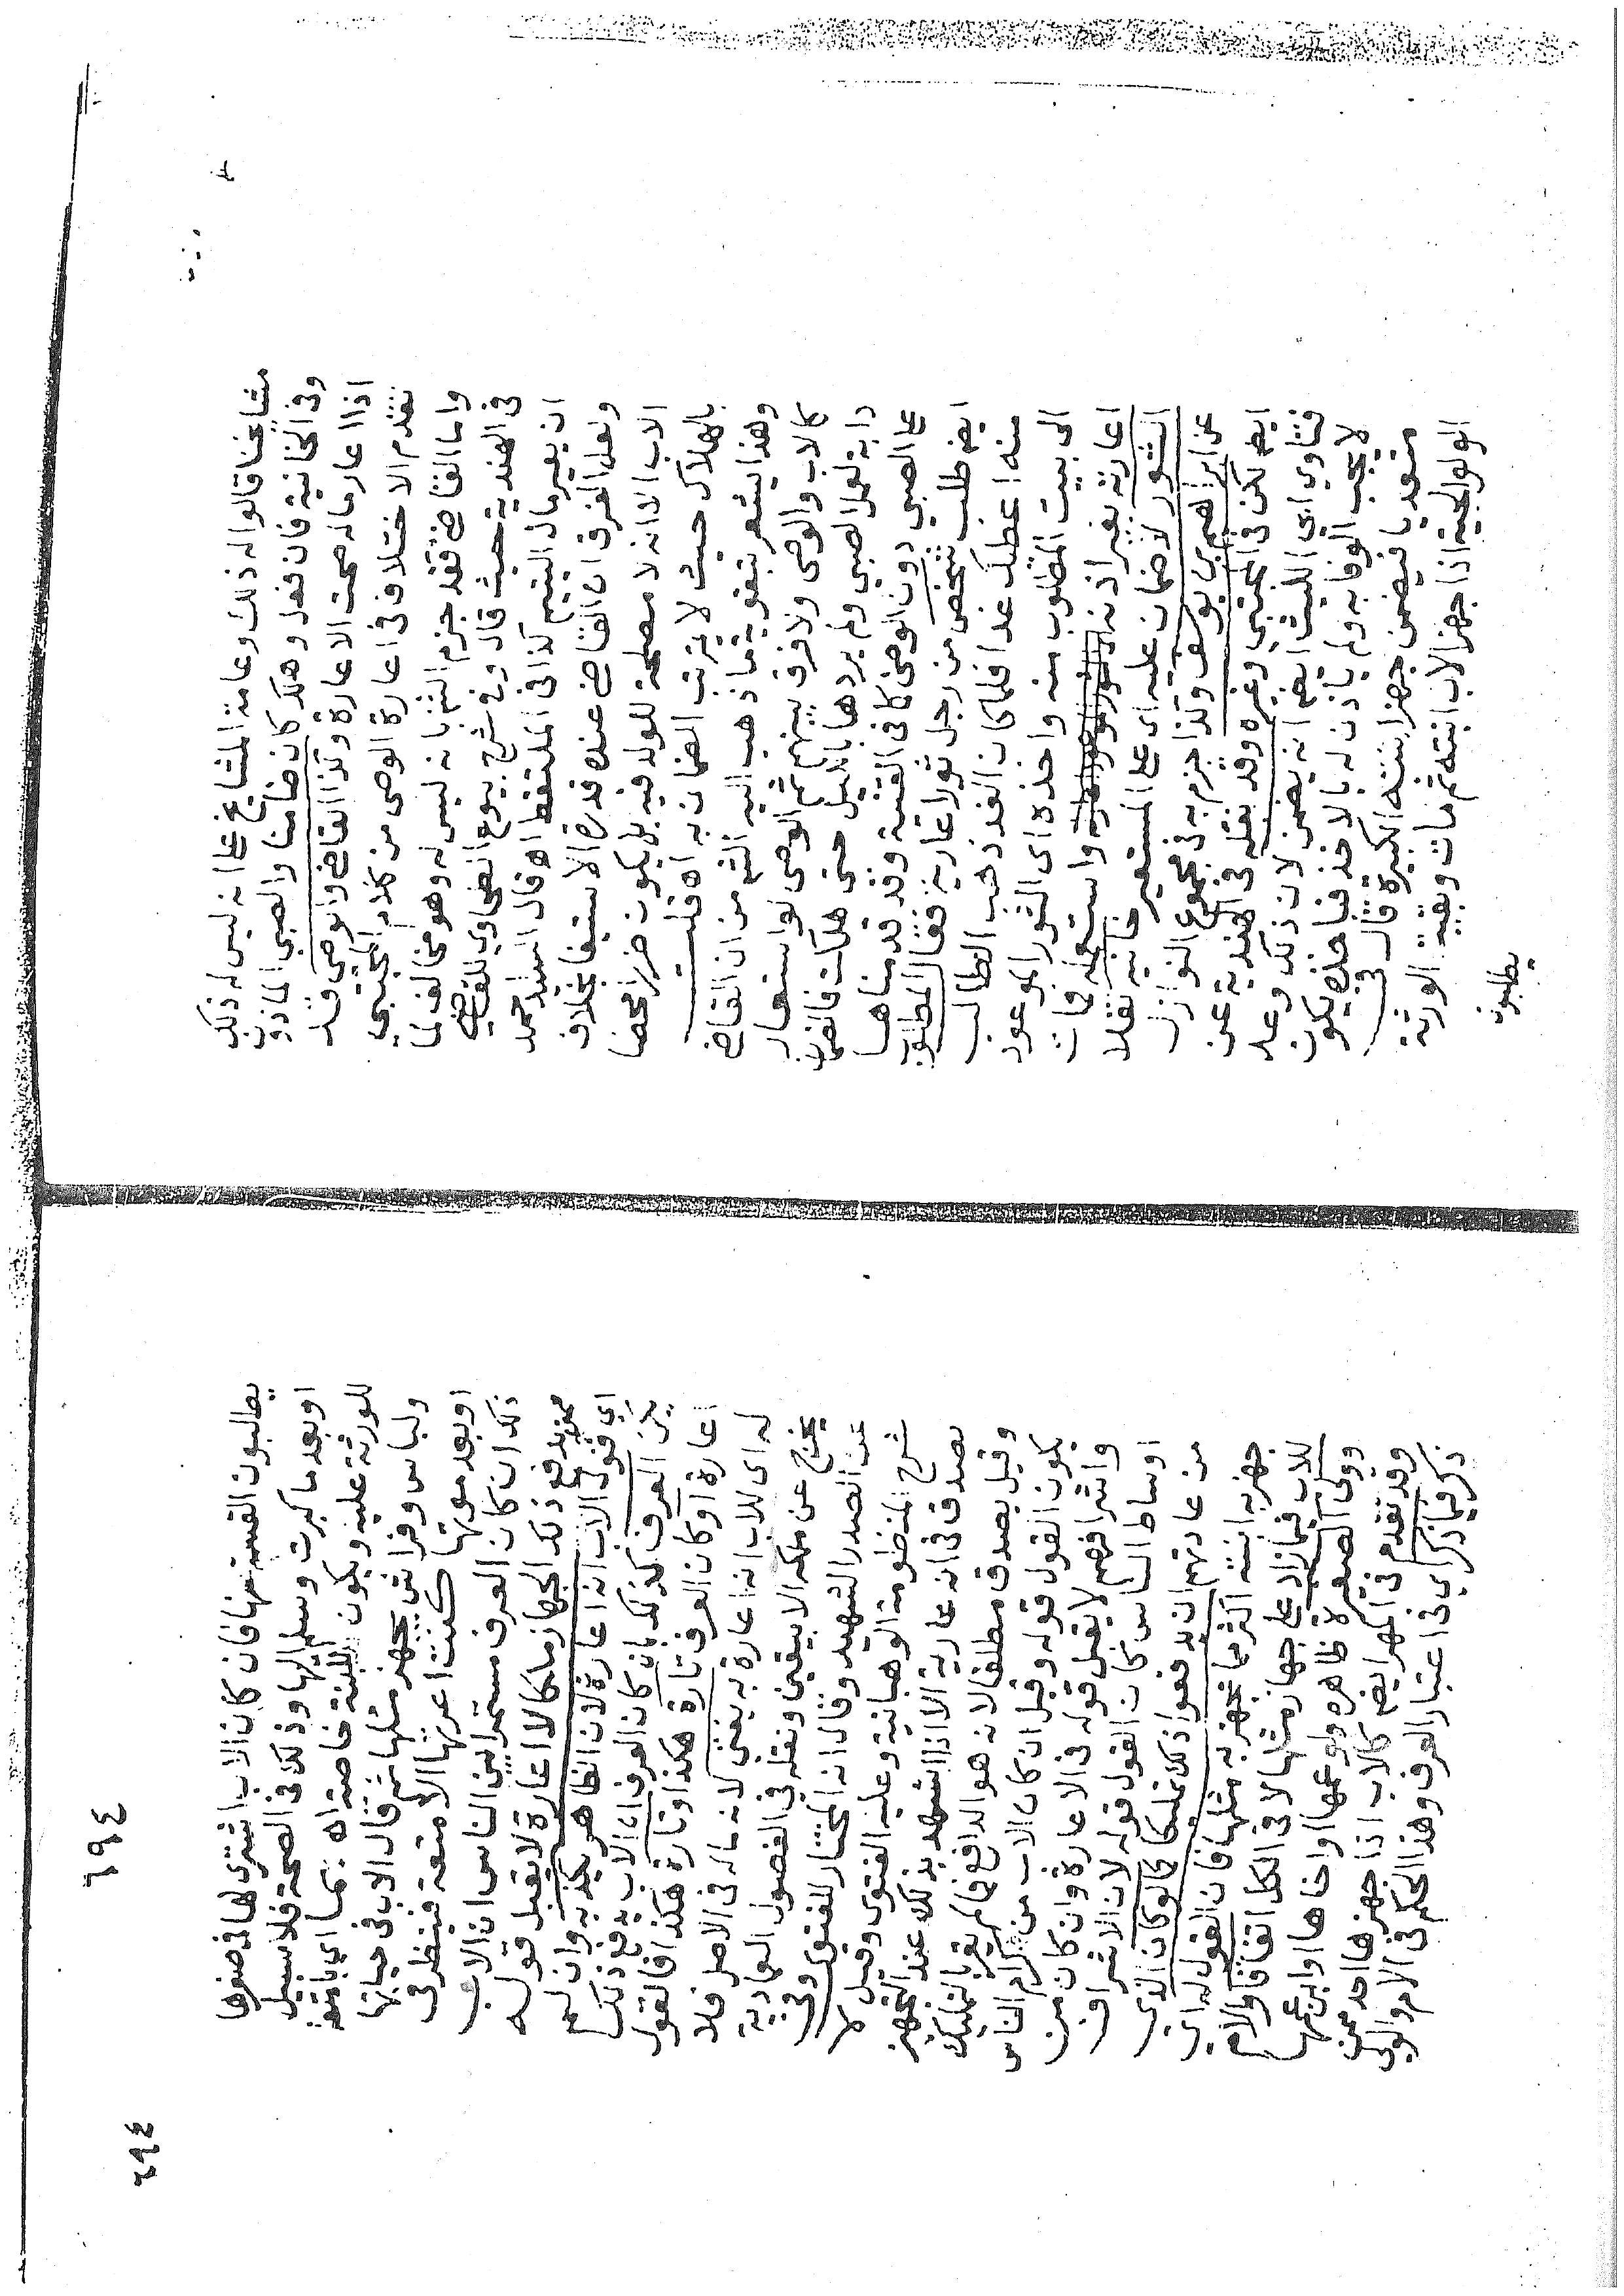 مشايخنا قالوا له ذلك وعامة المشايخ على انه ليس له ذلك
وفى الخانية فان فعل وهلك كان ضامنا والصبى الماذون
اذا اعار ماله صحت الاعارة وكذا القاضى والوصى قد
تقدم الاختلاف فى اعارة الوصى من كلام المجتبى
واما القاضى فقد جزم الشم بانه ليس له وهو مخالف لما
فى الهندية حيث قال وفى شرح بيوع الطحاوى للقاضى
ان يعير مال اليتيم كذا فى الملتقط اه قال السيد احمد
ولعل الفرق ان القاضى عنده قدرة الاستيفا بخلاف
الاب الا انه لا مصلحة للولد فيه بل يكون ضررا محضا
بالهلاك حيث لا يترتب الضمان به اه قلت
وهذا يشعر بتقوية ما ذهب اليه الشم من ان القاضى
كالاب والوصى ولا فرق بينهم ثم الوصى لو استعار
دابة لعمل الصبى ولم يردها بالليل حتى هلكت فالضمان
على الصبى دون الوصى كما فى القنية وقد قدمناها
ايضا طلب شخص من رجل ثورا عارية فقال المطلوب
منه اعطيك غدا فلما كان الغد ذهب الطالب
الى بيت المطلوب منه واخذه اى الثور الموعود
اعارته بغير اذنه واستعمله فمات
الثور لا ضمان عليه اى على المستعير خانيه نقلا
عن ابراهيم بن يوسف وكذا جزم به فى مجموع النوازل
ايضا لكن فى المجتبى وغيره وقد نقله فى الهندية عن
فتاوى ابى الليث ايضا انه يضمن لان ذلك وعد
لا يجب الوفا به ولم ياذن له بالاخذ فباخذه يكون
متعديا فيضمن جهز ابنته الكبيرة قال فى
الولوالجية اذا جهز الاب ابنته ثم مات وبقية الورثة
يطلبون
٦٩٤
٦٩٤
يطلبون القسمة منها فان كان الاب اشترى لها فى صغرها
او بعد ما كبرت وسلم اليها وذلك فى الصحة فلا سبيل
للورثة عليه ويكون للبنت خاصة اه بما اى بامتعة
ولباس وفراش يجهز مثلها ثم قال الاب فى حياتها
او بعد موتها كنت اعرتها الامتعة فينظر فى
ذلك ان كان العرف مستمرا بين الناس ان الاب
يدفع ذلك الجهاز ملكا لا اعارة لا يقبل قوله
اى قول الاب انه اعارة لان الظاهر يكذبه وان لم
يكن العرف كذلك بان كان العرف ان الاب يدفع ذلك
اعارة او كان العرف تارة هكذا وتارة هكذا فالقول
له اى للاب انه اعارة به يفتى لانه ملكه فى الاصل فلا
يخرج عن ملكه الا بيقين ونقله فى الفصول العمادية
عن الصدر الشهيد وقال انه المختار للفتوى وفى
شرح المنظومة الوهبانية وعليه الفتوى وقيل لا
يصدق فى انه عارية الا اذا اشهد بذلك عند التجهيز
وقيل يصدق مطلقا لانه هو الدافع فما لم يقر بالتمليك
يكون القول قوله وقيل ان كان الاب من كرام الناس
واشرافهم لا يقبل قوله فى الاعارة وان كان من
اوساط الناس كان القول قوله لان الاشراف
من عادتهم ان يدفعوا ذلك تمليكا كما لو كان الذى
جهز به ابنته اكثر مما يجهز به مثلها فان القول له اى
للاب فيما زاد على جهاز مثلها لا فى الكل اتفاقا والام
وولى الصغيرة ظاهره ولو عمها او اخاها او ابن عمها
وقد تقدم فى المهر ايضا كالاب اذا جهزها احد من
ذكر فيما ذكر اى فى اعتبار العرف وهذا الحكم فى الام والولى